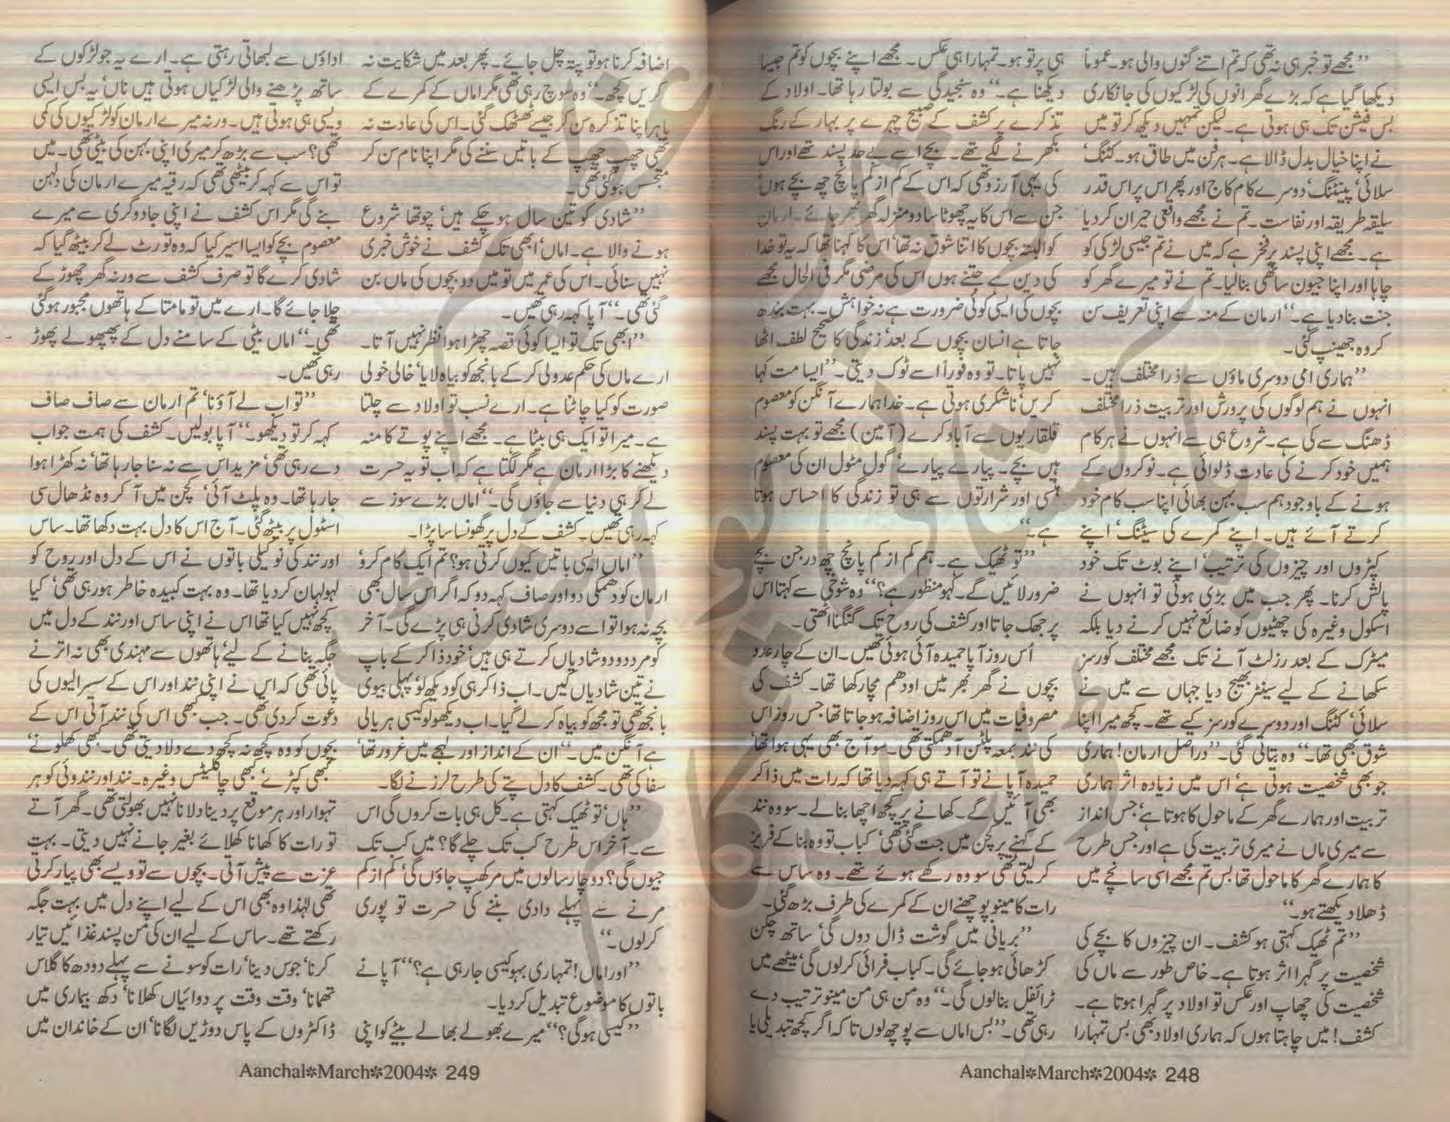 ”مجھے تو خبر ہی نہ تھی کہ تم اتنے گنوں والی ہو۔ عموماً
دیکھا گیا ہے کہ بڑے گھرانوں کی لڑکیوں کی جانکاری
بس فیشن تک ہی ہوتی ہے۔ لیکن تمہیں دیکھ کر تو میں
نے اپنا خیال بدل ڈالا ہے۔ ہر فن میں طاق ہو۔ کٹنگ‘
سلائی‘ پینٹنگ‘ دوسرے کام کاج اور پھر اس پر اس قدر
سلیقہ طریقہ اور نفاست۔ تم نے مجھے واقعی حیران کر دیا
ہے۔ مجھے اپنی پسند پر فخر ہے کہ میں نے تم جیسی لڑکی کو
چاہا اور اپنا جیون ساتھی بنا لیا۔ تم نے تو میرے گھر کو
جنت بنا دیا ہے۔“ ارمان کے منہ سے اپنی تعریف سن
کر وہ جھینپ گئی۔
”ہماری امی دوسری ماؤں سے ذرا مختلف ہیں۔
انہوں نے ہم لوگوں کی پرورش اور تربیت ذرا مختلف
ڈھنگ سے کی ہے۔ شروع ہی سے انہوں نے ہر کام
ہمیں خود کرنے کی عادت ڈلوائی ہے۔ نوکروں کے
ہونے کے باوجود ہم سب بہن بھائی اپنا سب کام خود
کرتے آئے ہیں۔ اپنے کمرے کی سیٹنگ‘ اپنے
کپڑوں اور چیزوں کی ترتیب‘ اپنے بوٹ تک خود
پالش کرنا۔ پھر جب میں بڑی ہوئی تو انہوں نے
اسکول وغیرہ کی چھٹیوں کو ضائع نہیں کرنے دیا بلکہ
میٹرک کے بعد رزلٹ آنے تک مجھے مختلف کورسز
سکھانے کے لیے سینٹر بھیج دیا جہاں سے میں نے
سلائی‘ کٹنگ اور دوسرے کورسز کیے تھے۔ کچھ میرا اپنا
شوق بھی تھا۔“ وہ بتاتی گئی۔ ”دراصل ارمان! ہماری
جو بھی شخصیت ہوتی ہے‘ اس میں زیادہ اثر ہماری
تربیت اور ہمارے گھر کے ماحول کا ہوتا ہے‘ جس انداز
سے میری ماں نے میری تربیت کی ہے اور جس طرح
کا ہمارے گھر کا ماحول تھا بس تم مجھے اسی سانچے میں
ڈھلا دیکھتے ہو۔“
”تم ٹھیک کہتی ہو کشف۔ ان چیزوں کا بچے کی
شخصیت پر گہرا اثر ہوتا ہے۔ خاص طور سے ماں کی
شخصیت کی چھاپ اور عکس تو اولاد پر گہرا ہوتا ہے۔
کشف! میں چاہتا ہوں کہ ہماری اولاد بھی بس تمہارا
ہی پرتو ہو۔ تمہارا ہی عکس۔ مجھے اپنے بچوں کو تم جیسا
دیکھنا ہے۔“ وہ سنجیدگی سے بولتا رہا تھا۔ اولاد کے
تذکرے پر کشف کے صبیح چہرے پر بہار کے رنگ
بکھرنے لگے تھے۔ بچے اسے بے حد پسند تھے اور اس
کی یہی آرزو تھی کہ اس کے کم از کم پانچ چھ بچے ہوں‘
جن سے اس کا یہ چھوٹا سا دو منزلہ گھر بھر جائے۔ ارمان
کو البتہ بچوں کا اتنا شوق نہ تھا‘ اس کا کہنا تھا کہ یہ تو خدا
کی دین ہے جتنے ہوں اس کی مرضی مگر فی الحال مجھے
بچوں کی ایسی کوئی ضرورت ہے نہ خواہش۔ بہت بندھ
جاتا ہے انسان بچوں کے بعد‘ زندگی کا صحیح لطف اٹھا
نہیں پاتا۔ تو وہ فوراً اسے ٹوک دیتی۔ ”ایسا مت کہا
کریں‘ ناشکری ہوتی ہے۔ خدا ہمارے آنگن کو معصوم
قلقاریوں سے آباد کرے (آمین) مجھے تو بہت پسند
ہیں بچے۔ پیارے پیارے‘ گول مٹول ان کی معصوم
ہنسی اور شرارتوں سے ہی تو زندگی کا احساس ہوتا
ہے۔“
”تو ٹھیک ہے۔ ہم کم از کم پانچ چھ درجن بچے
ضرور لائیں گے۔ کہو منظور ہے؟“ وہ شوخی سے کہتا اس
پر جھک جاتا اور کشف کی روح تک گنگنا اٹھتی۔
اُس روز آپا حمیدہ آئی ہوئی تھیں۔ ان کے چار عدد
بچوں نے گھر بھر میں اودھم مچا رکھا تھا۔ کشف کی
مصروفیات میں اس روز اضافہ ہو جاتا تھا جس روز اس
کی نند بمعہ پلٹن آ دھمکتی تھی۔ سو آج بھی یہی ہوا تھا‘
حمیدہ آپا نے تو آتے ہی کہہ دیا تھا کہ رات میں ذاکر
بھی آئیں گے۔ کھانے پر کچھ اچھا بنا لے۔ سو وہ نند
کے کہنے پر کچن میں جت گئی تھی‘ کباب تو وہ بنا کے فریز
کر لیتی تھی سو وہ رکھے ہوئے تھے۔ وہ ساس سے
رات کا مینو پوچھنے ان کے کمرے کی طرف بڑھ گئی۔
”بریانی میں گوشت ڈال دوں گی‘ ساتھ چکن
کڑھائی ہو جائے گی۔ کباب فرائی کر لوں گی‘ میٹھے میں
ٹرائفل بنا لوں گی۔“ وہ من ہی من مینو ترتیب دے
رہی تھی۔ ”بس اماں سے پوچھ لوں تا کہ اگر کچھ تبدیلی یا
Aanchal✲March✲2004✲ 248
اضافہ کرنا ہو تو پتہ چل جائے۔ پھر بعد میں شکایت نہ
کریں کچھ۔“ وہ سوچ رہی تھی مگر اماں کے کمرے کے
باہر اپنا تذکرہ سن کر جیسے ٹھٹک گئی۔ اس کی عادت نہ
تھی چھپ چھپ کے باتیں سننے کی مگر اپنا نام سن کر
متجسس ہو گئی تھی۔
”شادی کو تین سال ہو چکے ہیں‘ چوتھا شروع
ہونے والا ہے۔ اماں‘ ابھی تک کشف نے خوش خبری
نہیں سنائی۔ اس کی عمر میں تو میں دو بچوں کی ماں بن
گئی تھی۔“ آپا کہہ رہی تھیں۔
”ابھی تک تو ایسا کوئی قصہ چھڑا ہوا نظر نہیں آتا۔
ارے ماں کی حکم عدولی کر کے بانجھ کو بیاہ لایا‘ خالی خولی
صورت کو کیا چاٹنا ہے۔ ارے نسب تو اولاد سے چلتا
ہے۔ میرا تو ایک ہی بیٹا ہے۔ مجھے اپنے پوتے کا منہ
دیکھنے کا بڑا ارمان ہے مگر لگتا ہے کہ اب تو یہ حسرت
لے کر ہی دنیا سے جاؤں گی۔“ اماں بڑے سوز سے
کہہ رہی تھیں۔ کشف کے دل پر گھونسا سا پڑا۔
”اماں ایسی باتیں کیوں کرتی ہو؟ تم ایک کام کرو‘
ارمان کو دھمکی دو اور صاف کہہ دو کہ اگر اس سال بھی
بچہ نہ ہوا تو اسے دوسری شادی کرنی ہی پڑے گی۔ آخر
کو مرد دو دو شادیاں کرتے ہی ہیں‘ خود ذاکر کے باپ
نے تین شادیاں کیں۔ اب ذاکر ہی کو دیکھ لو‘ پہلی بیوی
بانجھ تھی تو مجھ کو بیاہ کر لے گیا۔ اب دیکھو لو کیسی ہریالی
ہے آنگن میں۔“ ان کے انداز اور لہجے میں غرور تھا‘
سفاکی تھی۔ کشف کا دل پتے کی طرح لرزنے لگا۔
”ہاں‘ تو ٹھیک کہتی ہے۔ کل ہی بات کروں گی اس
سے۔ آخر اس طرح کب تک چلے گا؟ میں کب تک
جیوں گی؟ دو چار سالوں میں مر کھپ جاؤں گی‘ کم از کم
مرنے سے پہلے دادی بننے کی حسرت تو پوری
کر لوں۔“
”اور اماں! تمہاری بہو کیسی جا رہی ہے؟“ آپا نے
باتوں کا موضوع تبدیل کر دیا۔
”کیسی ہو گی؟“ میرے بھولے بھالے بیٹے کو اپنی
اداؤں سے لبھاتی رہتی ہے۔ ارے یہ جو لڑکوں کے
ساتھ پڑھنے والی لڑکیاں ہوتی ہیں ناں‘ یہ بس ایسی
ویسی ہی ہوتی ہیں۔ ورنہ میرے ارمان کو لڑکیوں کی کمی
تھی؟ سب سے بڑھ کر میری اپنی بہن کی بیٹی تھی۔ میں
تو اس سے کہہ کر بیٹھی تھی کہ رقیہ میرے ارمان کی دلہن
بنے گی مگر اس کشف نے اپنی جادوگری سے میرے
معصوم بچے کو ایسا اسیر کیا کہ وہ تو رٹ لے کر بیٹھ گیا کہ
شادی کرے گا تو صرف کشف سے ورنہ گھر چھوڑ کے
چلا جائے گا۔ ارے میں تو مامتا کے ہاتھوں مجبور ہو گئی
تھی۔“ اماں بیٹی کے سامنے دل کے پھپھولے پھوڑ
رہی تھیں۔
”تو اب لے آؤ نا‘ تم ارمان سے صاف صاف
کہہ کر تو دیکھو۔“ آپا بولیں۔ کشف کی ہمت جواب
دے رہی تھی‘ مزید اس سے نہ سنا جا رہا تھا‘ نہ کھڑا ہوا
جا رہا تھا۔ وہ پلٹ آئی‘ کچن میں آ کر وہ نڈھال سی
اسٹول پر بیٹھ گئی۔ آج اس کا دل بہت دکھا تھا۔ ساس
اور نند کی نوکیلی باتوں نے اس کے دل اور روح کو
لہولہان کر دیا تھا۔ وہ بہت کبیدہ خاطر ہو رہی تھی‘ کیا
کچھ نہیں کیا تھا اس نے اپنی ساس اور نند کے دل میں
جگہ بنانے کے لیے‘ ہاتھوں سے مہندی بھی نہ اترنے
پائی تھی کہ اس نے اپنی نند اور اس کے سسرالیوں کی
دعوت کر دی تھی۔ جب بھی اس کی نند آتی اس کے
بچوں کو وہ کچھ نہ کچھ دے دلا دیتی تھی۔ کبھی کھلونے‘
کبھی کپڑے‘ کبھی چاکلیٹس وغیرہ۔ نند اور نندوئی کو ہر
تہوار اور ہر موقع پر دینا دلانا نہیں بھولتی تھی۔ گھر آتے
تو رات کا کھانا کھلائے بغیر جانے نہیں دیتی۔ بہت
عزت سے پیش آتی۔ بچوں سے تو ویسے بھی پیار کرتی
تھی لہٰذا وہ بھی اس کے لیے اپنے دل میں بہت جگہ
رکھتے تھے۔ ساس کے لیے ان کی من پسند غذائیں تیار
کرنا‘ جوس دینا‘ رات کو سونے سے پہلے دودھ کا گلاس
تھمانا‘ وقت وقت پر دوائیاں کھلانا‘ دکھ بیماری میں
ڈاکٹروں کے پاس دوڑیں لگانا‘ ان کے خاندان میں
Aanchal✲March✲2004✲ 249